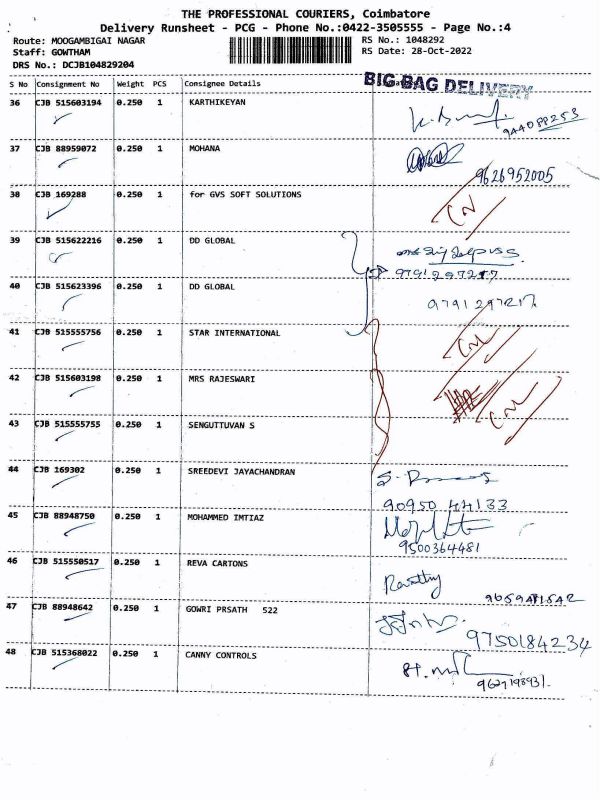 THE PROFESSIONAL COURIERS, Coimbatore
Delivery Runsheet - PCG - Phone No.:0422-3505555 - Page No.:4
Route: MOOGAMBIGAI NAGAR RS No.: 1048292
Staff: GOWTHAM RS Date: 28-Oct-2022
DRS No.: DCJB104829204
S No Consignment No Weight PCS Consignee Details
BIG BAG DELIVERY
36 CJB 515603194 0.250 1 KARTHIKEYAN
37 CJB 88959072 0.250 1 MOHANA
9626952005
38 CJB 169288 0.250 1 for GVS SOFT SOLUTIONS
CN
39 CJB 515622216 0.250 1 DD GLOBAL
9791297217
40 CJB 515623396 0.250 1 DD GLOBAL
9791297217
41 CJB 515555756 0.250 1 STAR INTERNATIONAL
42 CJB 515603198 0.250 1 MRS RAJESWARI
43 CJB 515555755 0.250 1 SENGUTTUVAN S
44 CJB 169302 0.250 1 SREEDEVI JAYACHANDRAN
90950 44133
45 CJB 88948750 0.250 1 MOHAMMED IMTIAZ
9500364481
46 CJB 515550517 0.250 1 REVA CARTONS
47 CJB 88948642 0.250 1 GOWRI PRSATH 522
9750184234
48 CJB 515368022 0.250 1 CANNY CONTROLS